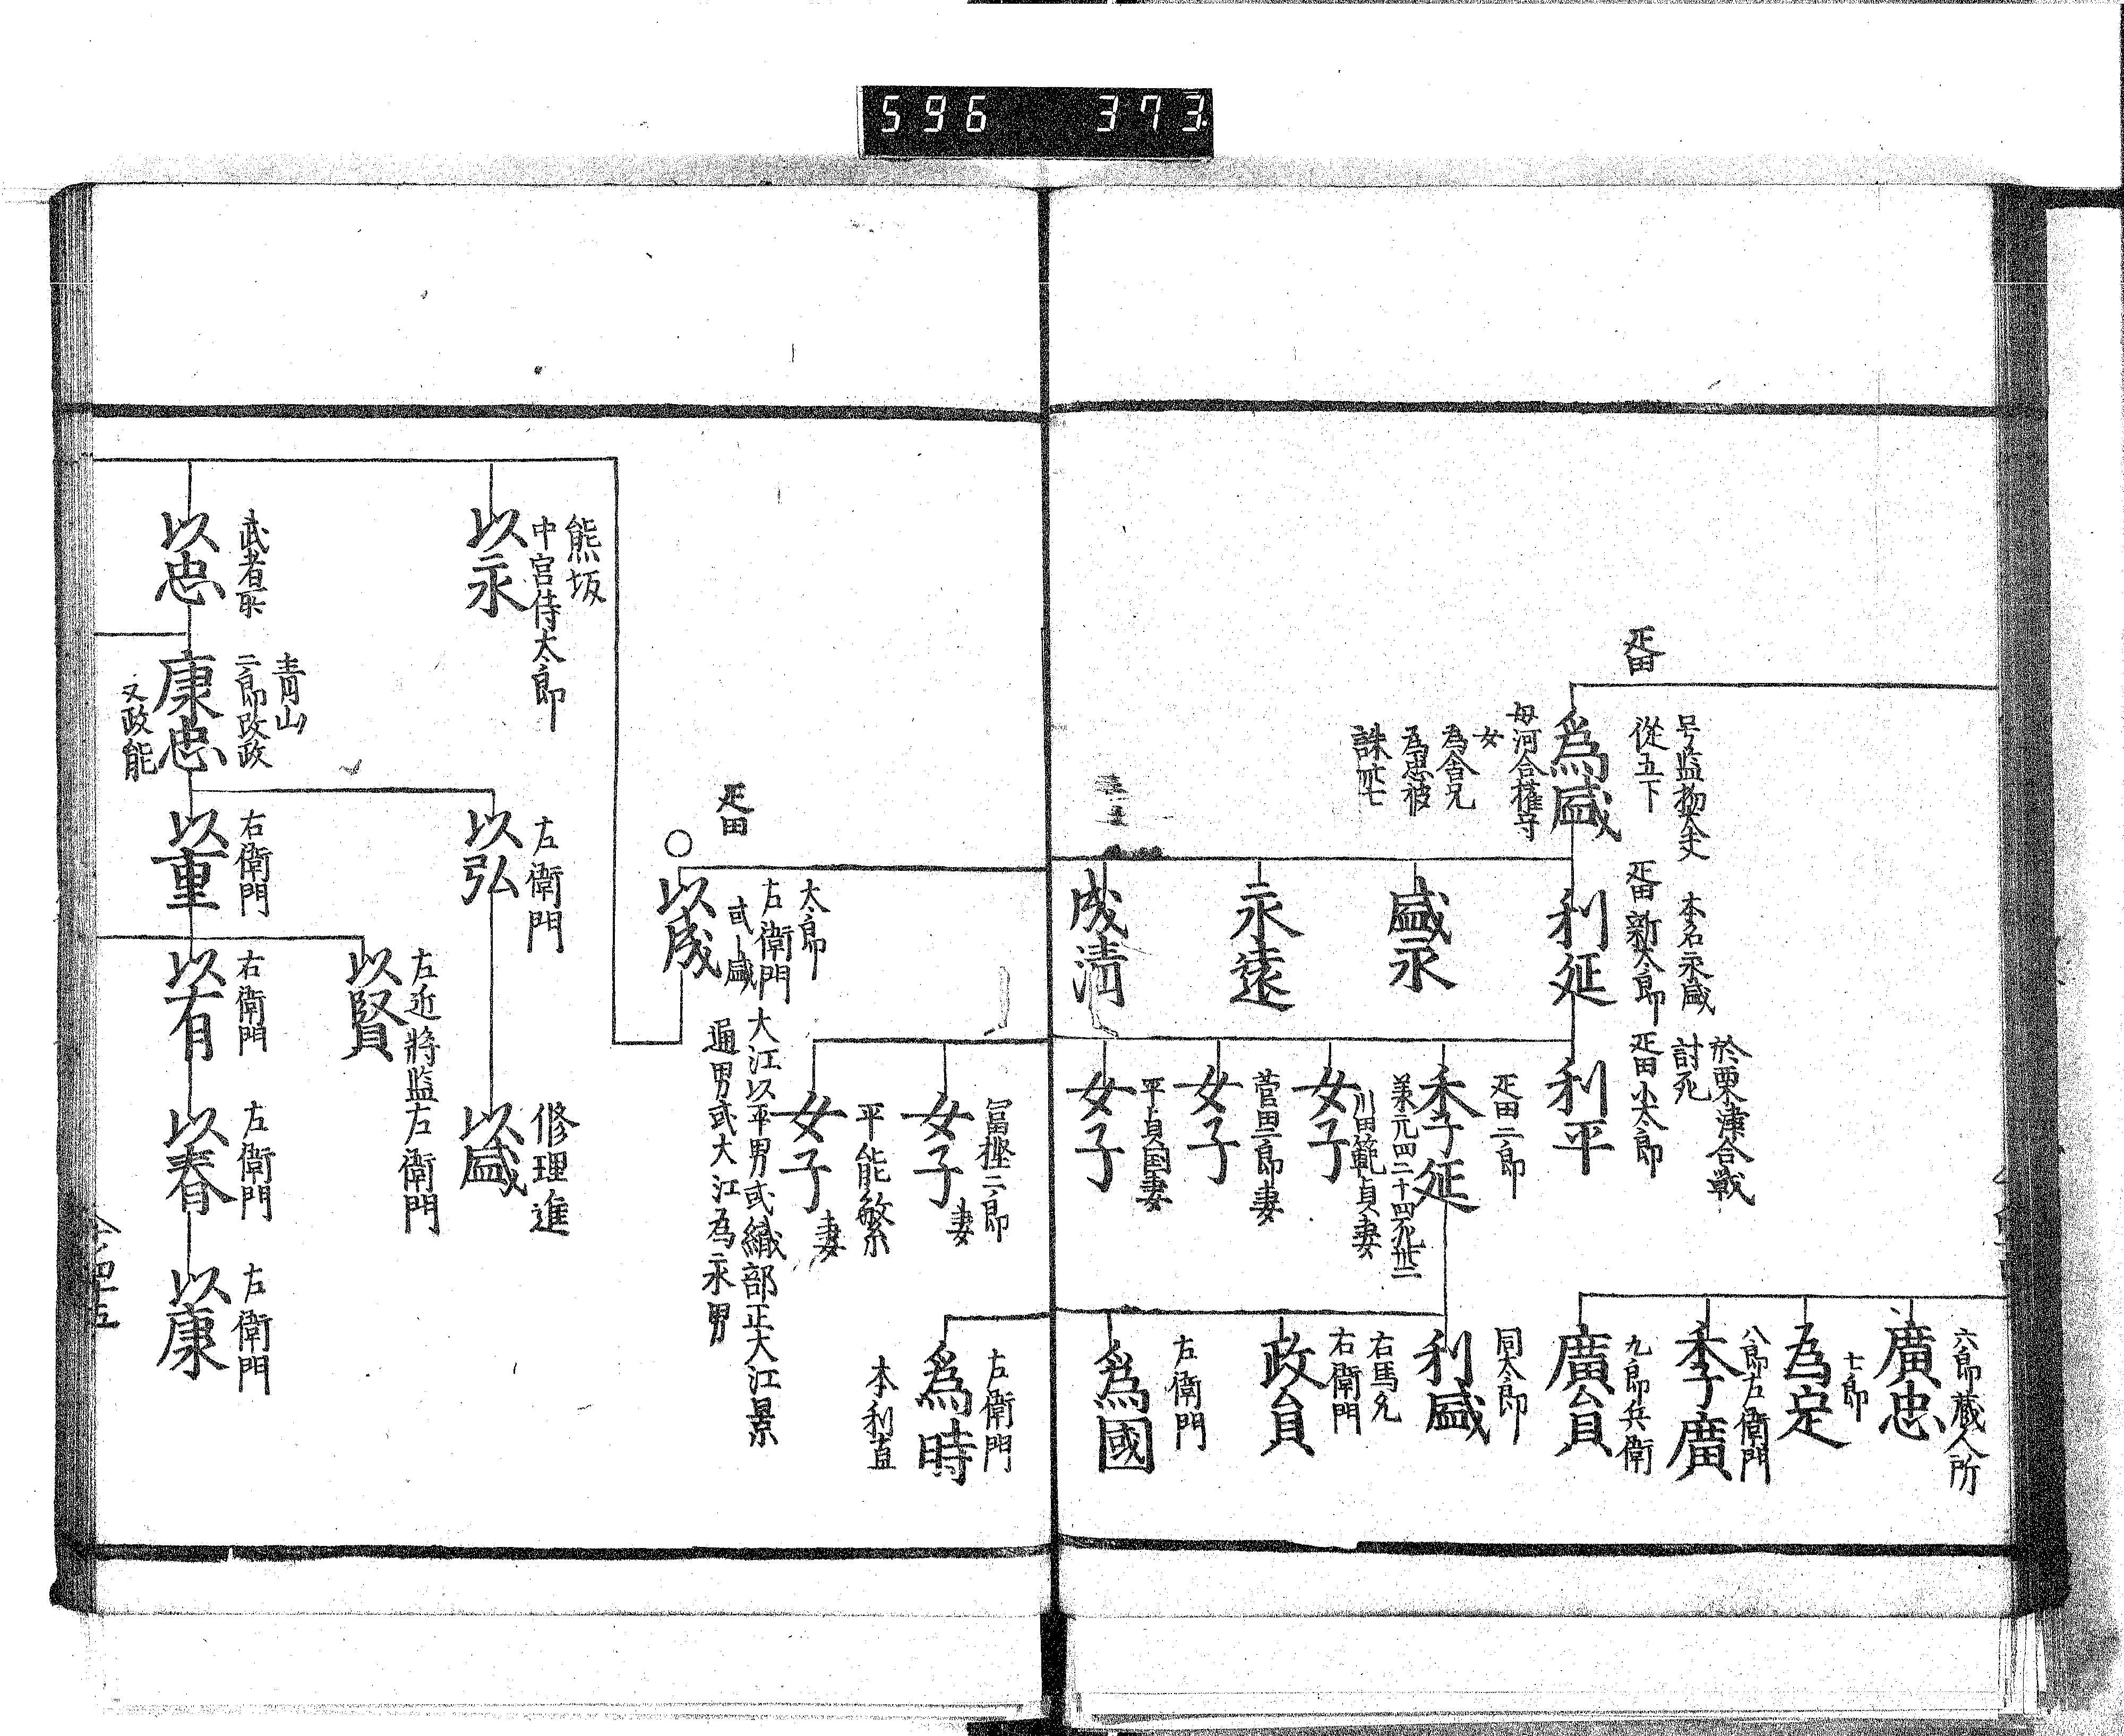 596 373
疋田
号監物大夫
從五下
為盛
母河合權守
女
為舎兄
為忠被
誅
本名永盛
疋田新太郎
利延
盛永
永遠
成清
於栗津合戦
討死
疋田小太郎
利平
疋田二郎
季延
川田範貞妻
女子
菅田二郎妻
女子
平貞国妻
女子
六郎蔵人所
廣忠
七郎
為定
八郎左衛門
季廣
九郎兵衛
廣員
同太郎
利盛
右馬允
右衛門
政員
左衛門
為國
冨樫二郎
妻
女子
平能繁
妻
女子
左衛門
為時
本利直
疋田
○
太郎
左衛門
或盛
以成
大江以平男或織部正大江景
逼男或大江為永男
熊坂
中宮侍太郎
以永
武者所
以忠
青山
二郎改政
康忠
又政能
左衛門
以弘
右衛門
以重
修理進
以盛
左近将監左衛門
以賢
右衛門
以有
左衛門
以春
左衛門
以康